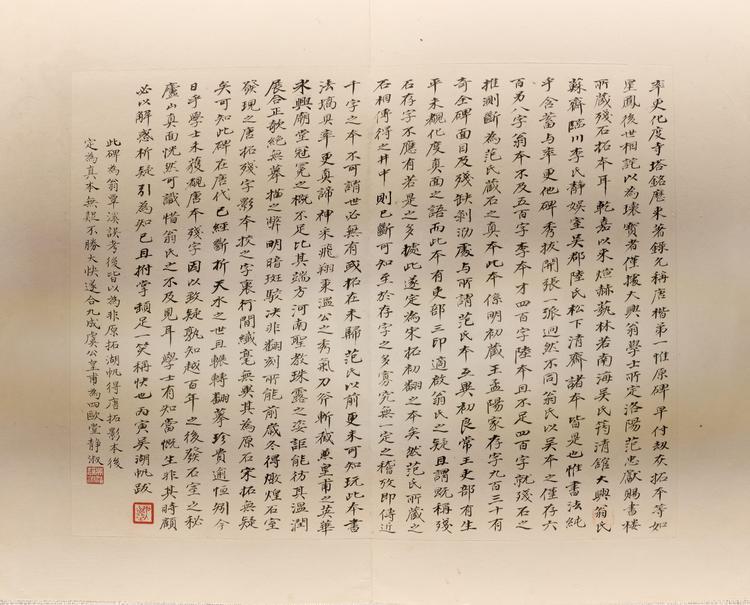 率更化度寺塔銘歷來著錄允稱唐楷第一惟原碑早付劫灰拓本等如
星鳳後世相詫以為瓌寶者僅據大興翁學士所定洛陽范忠獻賜書樓
所藏殘石拓本耳乾嘉以來煊赫藝林若南海吳氏筠清館大興翁氏
蘇齋臨川李氏靜娛室吳郡陸氏松下清齋諸本皆是也惟書法純
乎含蓄與率更他碑秀拔開張一派迥然不同翁氏以吳本之僅存六
百另八字翁本不及五百字李本才四百字陸本且不足四百字就殘石之
推測斷為范氏藏石之真本此本係明初藏王孟陽家存字九百三十有
奇全碑面目及殘缺剝泐處與所謂范氏本互異初良常王吏部有生
平未覩化度真面之語而此本有吏部三印適啟翁氏之疑且謂既稱殘
石存字不應有若是之多據此遂定為宋拓初翻之本矣然范氏所藏之
石相傳得之井中則已斷可知至於存字之多寡究無一定之稽攷即傳近
千字之本不可謂世必無有或拓在未歸范氏以前更未可知玩此本書
法熇奐率更真諦神采飛翔東溫公之秀氣刀斧斬截兼皇甫之英華
永興廟堂冠冕之概不足比其端方河南聖教珠露之姿詎能仿其溫潤
展合正欹絕無摹描之弊明暗斑駮決非翻刻所能前歲冬得燉煌石室
發現之唐拓殘字影本校之字裏行間纖毫無異其為原石宋拓無疑
矣可知此碑在唐代已經斷折天水之世且輾轉翻摹珍貴逾恒矧今
日乎學士未獲覩唐本殘字因以致疑孰知越百年之後發石室之秘
廬山真面恍然可識惜翁氏之不及見耳學士有知當慨生非其時顧
必以解惑析疑引為知己且拊掌頓足一笑稱快也丙寅吳湖帆跋
此碑為翁覃溪誤考後皆以為非原拓湖帆得唐拓影本後
定為真本無疑不勝大快遂合九成虞公皇甫為四歐堂靜淑